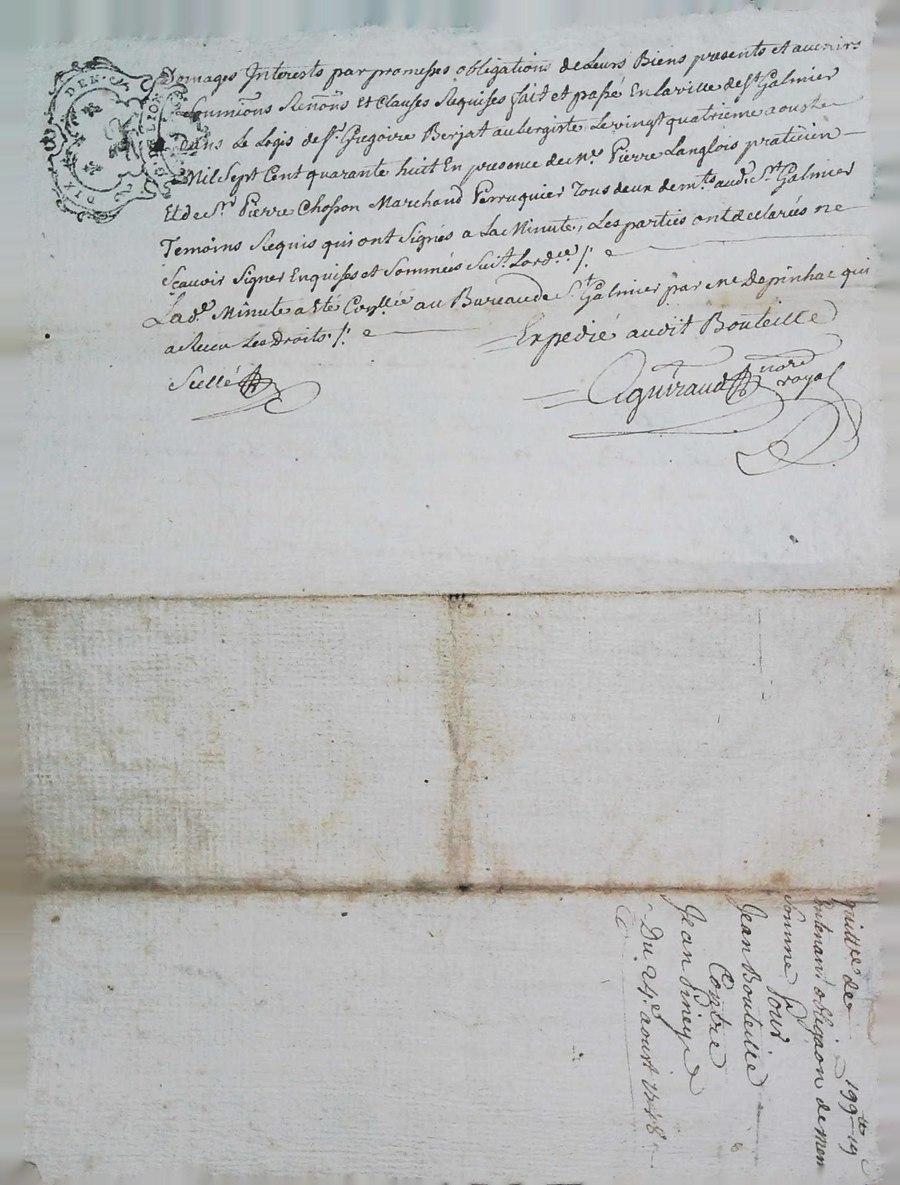 DIX DEN. G. DE LION
Domages Interests par promesses obligations de Leurs Biens presents et avenirs
Soumiōns Renōns Et Clauses Requises fait et passé En la ville de St Galmier
Dans Le Logis de Sr. Gregoire Berjat aubergiste Le vingt quatrieme aoust
Mil Sept Cent quarante huit En presence de me. Pierre Langlois praticien
Et de Sr. Pierre Chosson Marchand Perruquier Tous deux de mts. aud. St. Galmier
Temoins Requis qui ont Signés a La Minute, Les parties ont declarées ne
Scavoir Signer Enquises et Sommées Suit. Lord.ce /.
Lad.e Minute a Eté Conllée au Bureau de St. Galmier par me Depinhac qui
a Receu Les Droits /.
Expedié audit Bouteille
Scellé
Aguiraud nore royal
quittce de 199 tt 19
Contenant obligaon de mem
Somme Pour
Jean Bouteille
Contre
Jean Pineye
Du. 24e. aoust 1748.